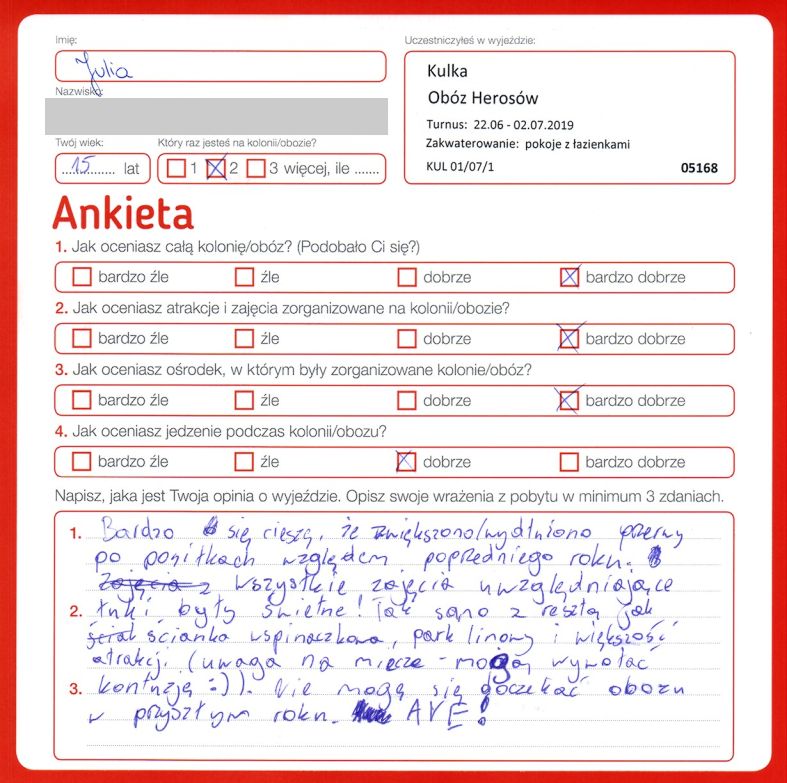 Imię:
Julia
Nazwisko:
Twój wiek:
Który raz jesteś na kolonii/obozie?
15 lat
1 2 3 więcej, ile .......
Uczestniczyłeś w wyjeździe:
Kulka
Obóz Herosów
Turnus: 22.06 - 02.07.2019
Zakwaterowanie: pokoje z łazienkami
KUL 01/07/1 05168
Ankieta
1. Jak oceniasz całą kolonię/obóz? (Podobało Ci się?)
bardzo źle źle dobrze bardzo dobrze
2. Jak oceniasz atrakcje i zajęcia zorganizowane na kolonii/obozie?
bardzo źle źle dobrze bardzo dobrze
3. Jak oceniasz ośrodek, w którym były zorganizowane kolonie/obóz?
bardzo źle źle dobrze bardzo dobrze
4. Jak oceniasz jedzenie podczas kolonii/obozu?
bardzo źle źle dobrze bardzo dobrze
Napisz, jaka jest Twoja opinia o wyjeździe. Opisz swoje wrażenia z pobytu w minimum 3 zdaniach.
1. Bardzo się cieszą, że zwiększono/wydłużono przerwy
po posiłkach względem poprzedniego roku.
Zajęcia z wszystkie zajęcia uwzględniające
2. łuki były świetne! Tak samo z resztą jak
ścianka wspinaczkowa, park linowy i większość
atrakcji (uwaga na miecze - mogą wywołać
3. kontuzją :)). Nie mogą się doczekać obozu
w przyszłym roku. AVE!